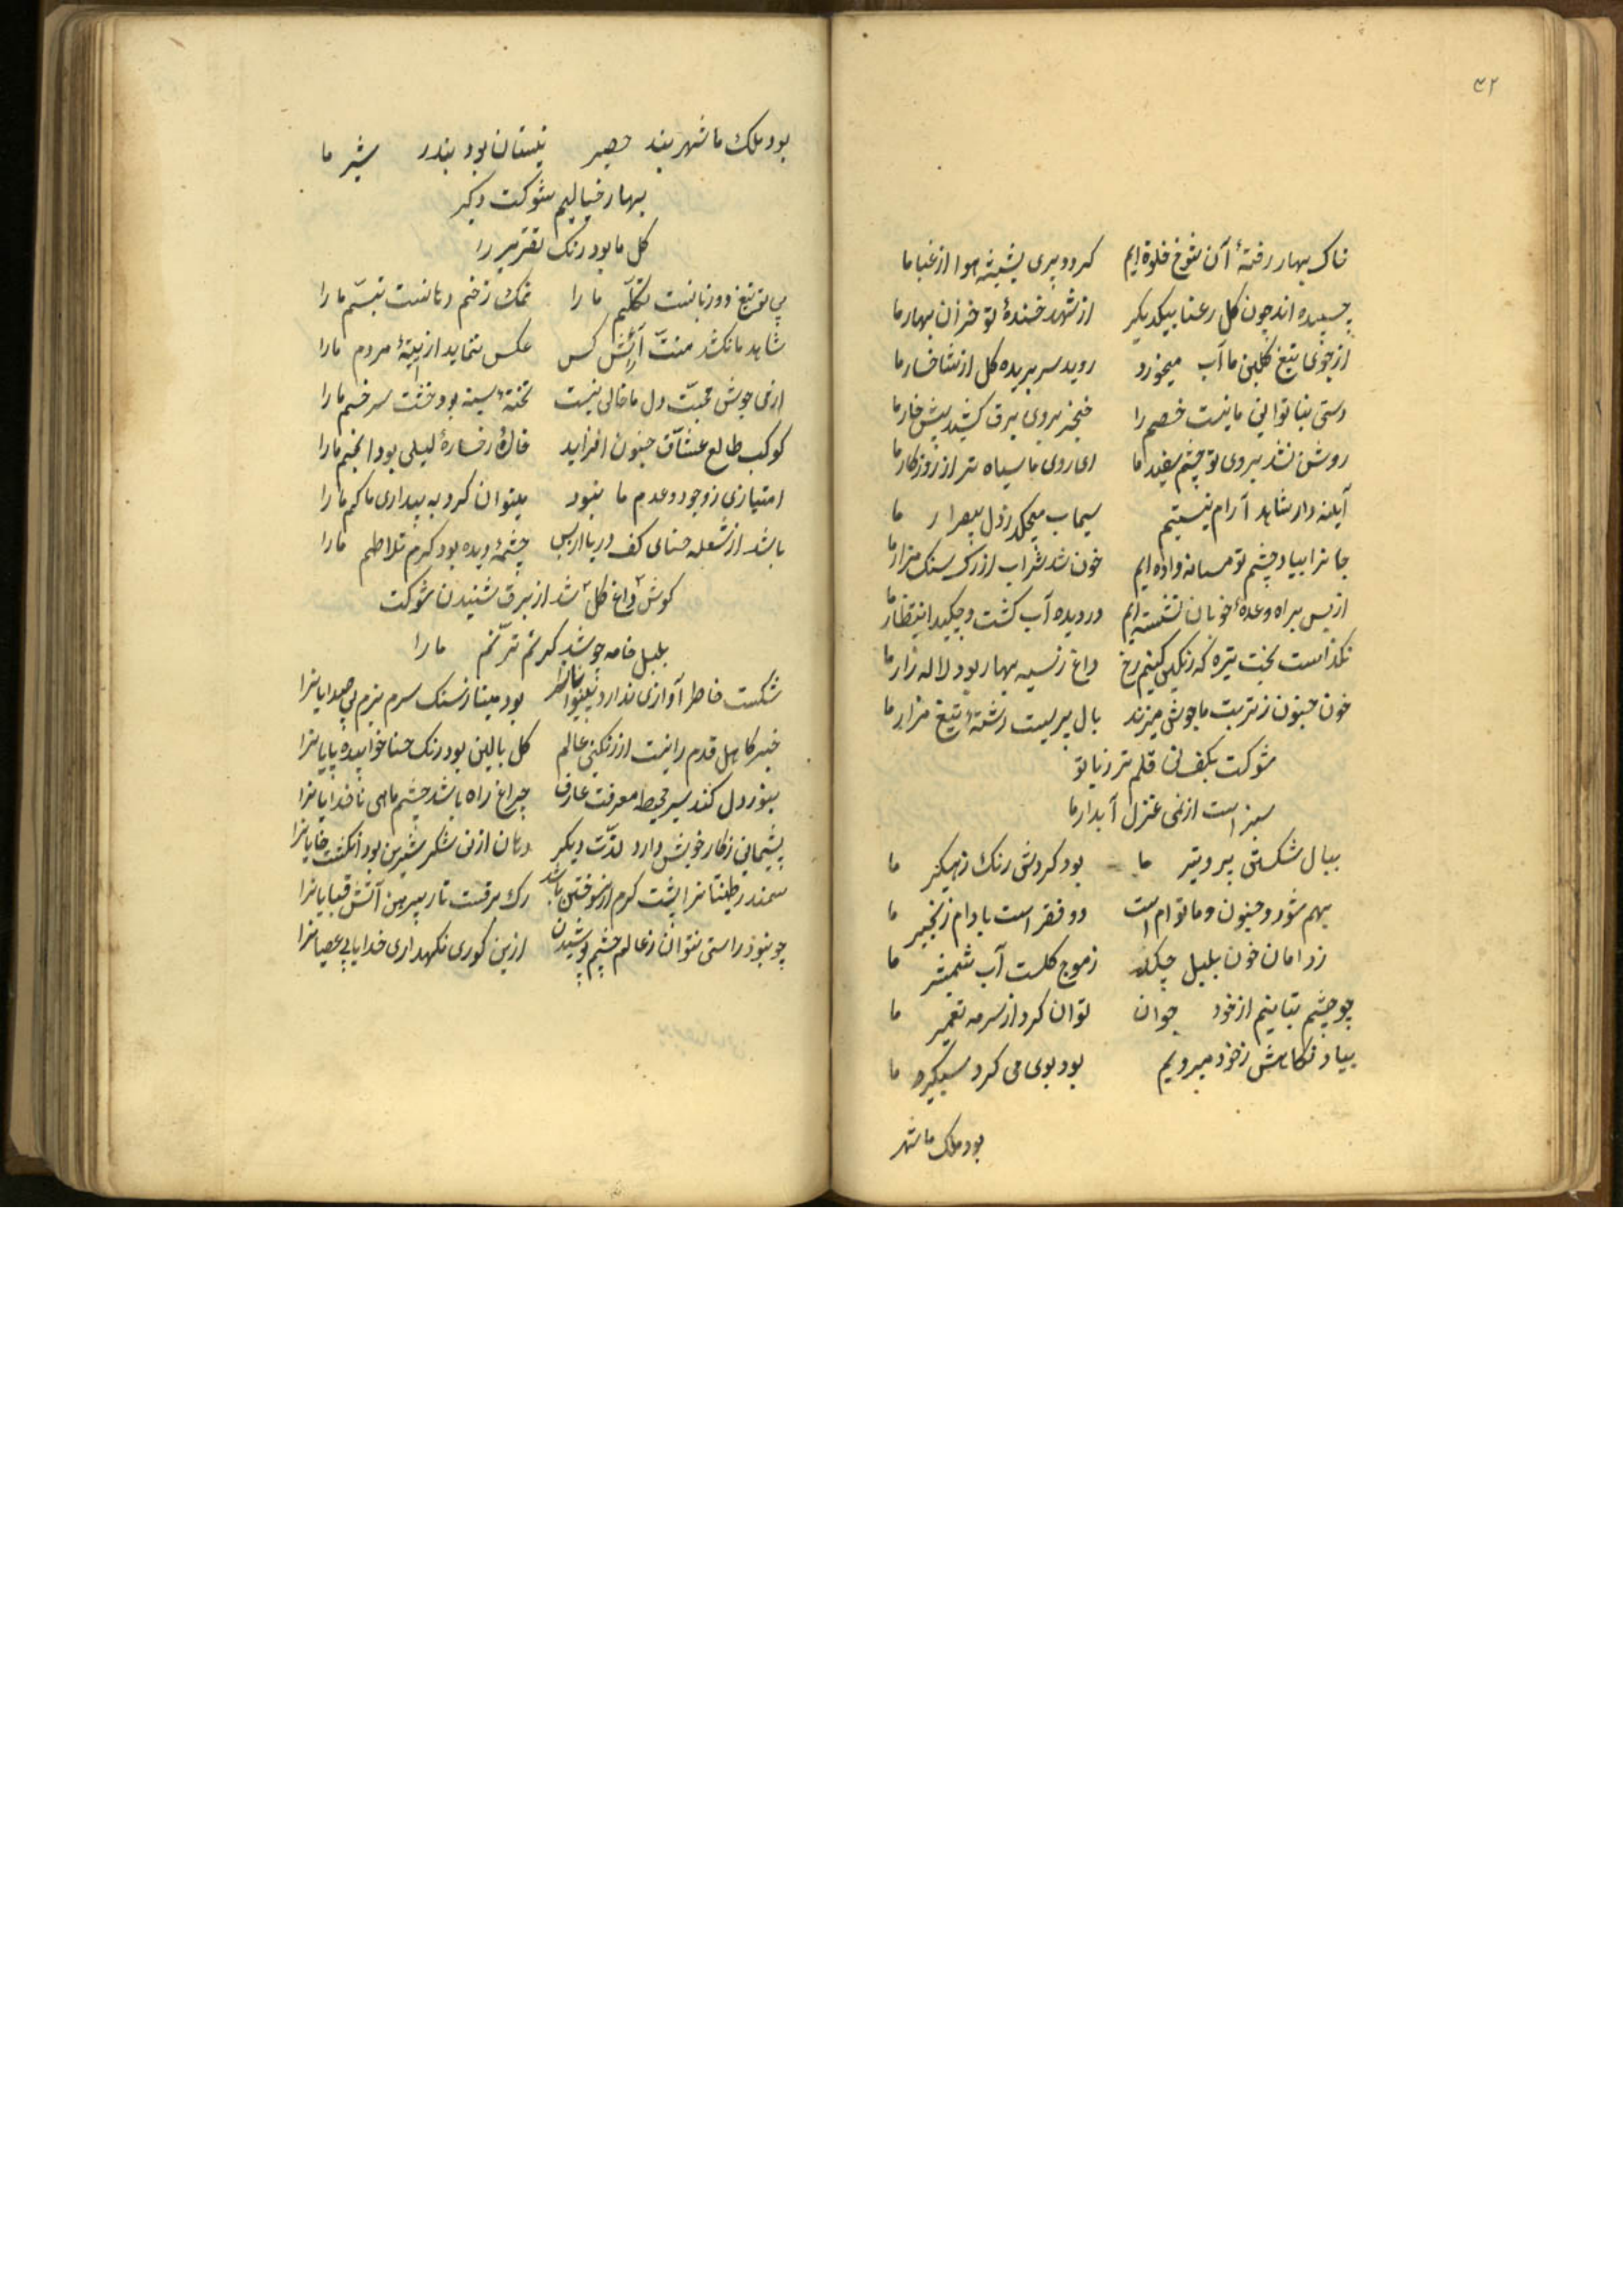 ۴۲
خاک بهار رفتهٔ آن شوخ جلوه ایم کردد پری بشیشه هوا از غبار ما
چسبیده اند چون کل رعنا بیکدیکر از شهد خندهٔ تو خزان بهار ما
از جوی تیغ کلبن ما آب میخورد روید سر بریده کل از شاخسار ما
دستی بناتوانی ما نیست خصم را خنجر بروی برق کشد پیش خار ما
روشن نشد بروی تو چشم سفید ما ای روی ما سیاه تر از روزکار ما
آیینه دار شاهد آرام نیستیم سیماب میچکد ز دل بیقرار ما
جانرا بیاد چشم تو مستانه داده ایم خون شد شراب از رک سنک مزار ما
از بس براه وعدهٔ خوبان نشسته ایم در دیده آب کشت و چکید انتظار ما
نکذاست بخت تیره که رنکین کنیم رخ داغ ز سیه بهار بود لاله زار ما
خون جنون ز تربت ما جوش میزند بال پریست رشتهٔ تیغ مزار ما
شوکت بکف نی قلم تر زبان تو
سبز است از نمی غزل آبدار ما
ببال شکستن پرد تیر ما بود کردش رنک زهکیر ما
بهم شور و جنون و ما توام است دو مغز است بادام زنجیر ما
ز دامان خون بلبل چکد ز موج کلست آب شمشیر ما
چو چشم بتانیم از خود جوان توان کرد از سرمه تعمیر ما
بیاد نکاهش ز خود میرویم بود بوی می کرد شبکیر ما
بود ملک ما شهر
بود ملک ما شهر بند حصیر نیستان بود بندر شیر ما
بهار خیالیم شوکت دکر
کل ما بود رنک تقریر را
بی تو تیغ دو زبانست تکلّم ما را نمک زخم دهانست تبسّم ما را
شاهد ما نکشد منّت آرایش کس عکس ننماید از آیینهٔ مردم ما را
از می جوش محبّت دل ما خالی نیست تختهٔ سینه بود خشت سر خم ما را
کوکب طالع عشّاق جنون افزاید خال رخسارهٔ لیلی بود انجم ما را
امتیازی ز وجود و عدم ما نبود میتوان کرد به بیداری ما کم ما را
باشد از شعله حنای کف دریا از بس چشمهٔ دیده بود کرم تلاطم ما را
کوش داغ کل شد از برق شنیدن شوکت
بلبل خامه چو شد کرم ترنّم ما را
شکست خاطر آوازی ندارد بینوایانرا بود مینا ز سنک سرمه بزم بی صدایانرا
خبر کاهل قدم را نیست از رنکینی عالم کل بالین بود رنک حنا خوابیده پایانرا
بنور دل کند سیر محیط معرفت عارف چراغ راه باشد چشم ماهی ناخدایانرا
پشیمانی ز کار خویش دارد لذّت دیکر دهان از نی شکر شیرین بود انکشت خایانرا
سمندر طینتانرا پشت کرم از سوختن باشد رک برقست تار پیرهن آتش قبایانرا
چو نبود راستی نتوان ز عالم چشم پوشیدن ازین کوری نکهداری خدایا بی عصایانرا